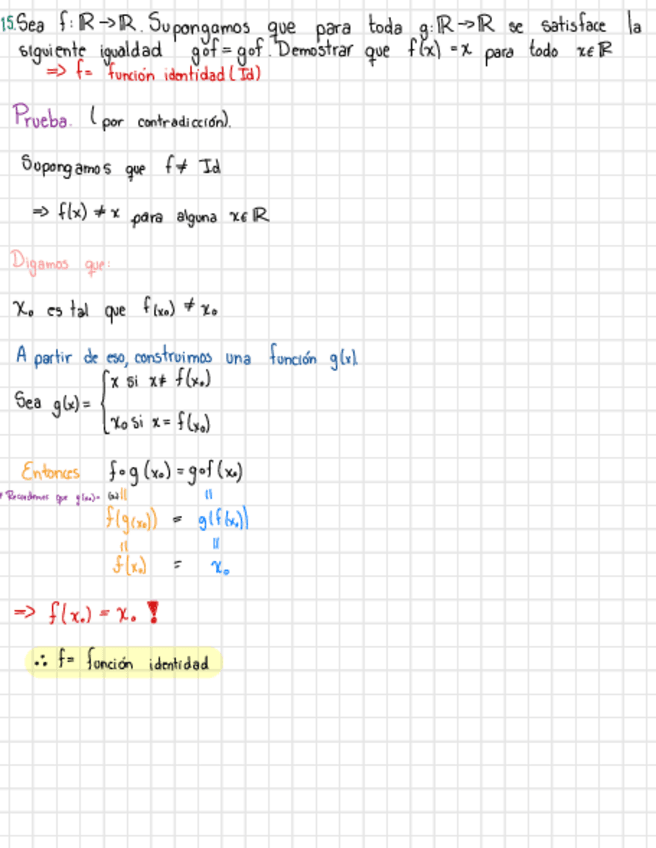 15. Sea f: ℝ→ℝ. Supongamos que para toda g: ℝ→ℝ se satisface la
siguiente igualdad g∘f = g∘f. Demostrar que f(x) = x para todo x∈ℝ
⇒ f = función identidad (Id)
Prueba. (por contradicción).
Supongamos que f ≠ Id
⇒ f(x) ≠ x para alguna x∈ℝ
Digamos que:
x₀ es tal que f(x₀) ≠ x₀
A partir de eso, construimos una función g(x).
Sea g(x) = { x si x ≠ f(x₀)
x₀ si x = f(x₀)
Entonces f∘g (x₀) = g∘f (x₀)
Recordemos que g(x₀) = (x₀) || ||
f(g(x₀)) = g(f(x₀))
|| ||
f(x₀) = x₀
⇒ f(x₀) = x₀ !
∴ f = función identidad